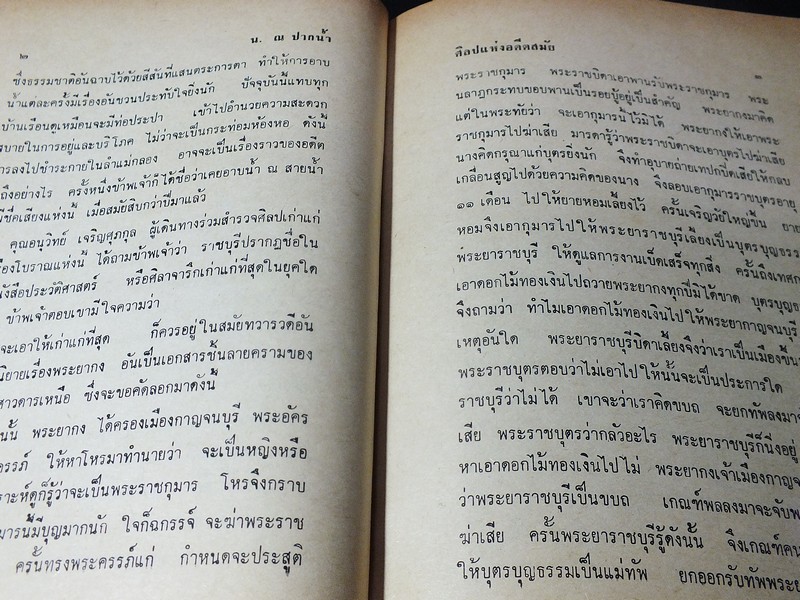 น. ณ ปากน้ำ
๒
ซึ่งธรรมชาติอันฉาบไว้ด้วยสีสันที่แสนตระการตา ทำให้การอาบ
น้ำแต่ละครั้งมีเรื่องอันชวนประทับใจยิ่งนัก ปัจจุบันนี้แทบทุก
บ้านเรือนดูเหมือนจะมีท่อประปา เข้าไปอำนวยความสะดวก
สบายในการอยู่และบริโภค ไม่ว่าจะเป็นกระท่อมห้องหอ ดังนี้
การลงไปชำระกายในลำแม่กลอง อาจจะเป็นเรื่องราวของอดีต
ถึงอย่างไร ครั้งหนึ่งข้าพเจ้าก็ได้ชื่อว่าเคยอาบน้ำ ณ สายน้ำ
มีชื่อเสียงแห่งนี้ เมื่อสมัยสิบกว่าปีมาแล้ว
คุณอนุวิทย์ เจริญศุภกุล ผู้เดินทางร่วมสำรวจศิลปเก่าแก่
เมืองโบราณแห่งนี้ ได้ถามข้าพเจ้าว่า ราชบุรีปรากฏชื่อใน
หนังสือประวัติศาสตร์ หรือศิลาจารึกเก่าแก่ที่สุดในยุคใด
ข้าพเจ้าตอบเขามีใจความว่า
จะเอาให้เก่าแก่ที่สุด ก็ควรอยู่ในสมัยทวารวดีอัน
นิยายเรื่องพระยากง อันเป็นเอกสารชั้นลายครามของ
ศาวดารเหนือ ซึ่งจะขอคัดลอกมาดังนี้
นนั้น พระยากง ได้ครองเมืองกาญจนบุรี พระอัคร
ครรภ์ ให้หาโหรมาทำนายว่า จะเป็นหญิงหรือ
ราะห์ดูก็รู้ว่าจะเป็นพระราชกุมาร โหรจึงกราบ
มารนี้มีบุญมากนัก ใจก็ฉกรรจ์ จะฆ่าพระราช
ครั้นทรงพระครรภ์แก่ กำหนดจะประสูติ
ศิลปแห่งอดีตสมัย
๓
พระราชกุมาร พระราชบิดาเอาพานรับพระราชกุมาร พระ
นลาฏกระทบขอบพานเป็นรอยบู้อยู่เป็นสำคัญ พระยากงมาคิด
แต่ในพระทัยว่า จะเอากุมารนี้ไว้มิได้ พระยากงให้เอาพระ
ราชกุมารไปฆ่าเสีย มารดารู้ว่าพระราชบิดาจะเอาบุตรไปฆ่าเสีย
นางคิดกรุณาแก่บุตรยิ่งนัก จึงทำอุบายถ่ายเทปกปิดเสียให้กลบ
เกลื่อนสูญไปด้วยความคิดของนาง จึงลอบเอากุมารราชบุตรอายุ
๑๑ เดือน ไปให้ยายหอมเลี้ยงไว้ ครั้นเจริญวัยใหญ่ขึ้น ยาย
หอมจึงเอากุมารไปให้พระยาราชบุรีเลี้ยงเป็นบุตรบุญธรร
พระยาราชบุรี ให้ดูแลการงานเบ็ดเสร็จทุกสิ่ง ครั้นถึงเทศก
เอาดอกไม้ทองเงินไปถวายพระยากงทุกปีมิได้ขาด บุตรบุญธ
จึงถามว่า ทำไมเอาดอกไม้ทองเงินไปให้พระยากาญจนบุรี
เหตุอันใด พระยาราชบุรีบิดาเลี้ยงจึงว่าเราเป็นเมืองขึ้นท
พระราชบุตรตอบว่าไม่เอาไปให้นั้นจะเป็นประการใด
ราชบุรีว่าไม่ได้ เขาจะว่าเราคิดขบถ จะยกทัพลงมาจ
เสีย พระราชบุตรว่ากลัวอะไร พระยาราชบุรีก็นิ่งอยู่
หาเอาดอกไม้ทองเงินไปไม่ พระยากงเจ้าเมืองกาญจ
ว่าพระยาราชบุรีเป็นขบถ เกณฑ์พลลงมาจะจับพ
ฆ่าเสีย ครั้นพระยาราชบุรีรู้ดังนั้น จึงเกณฑ์คน
ให้บุตรบุญธรรมเป็นแม่ทัพ ยกออกรับทัพพระย